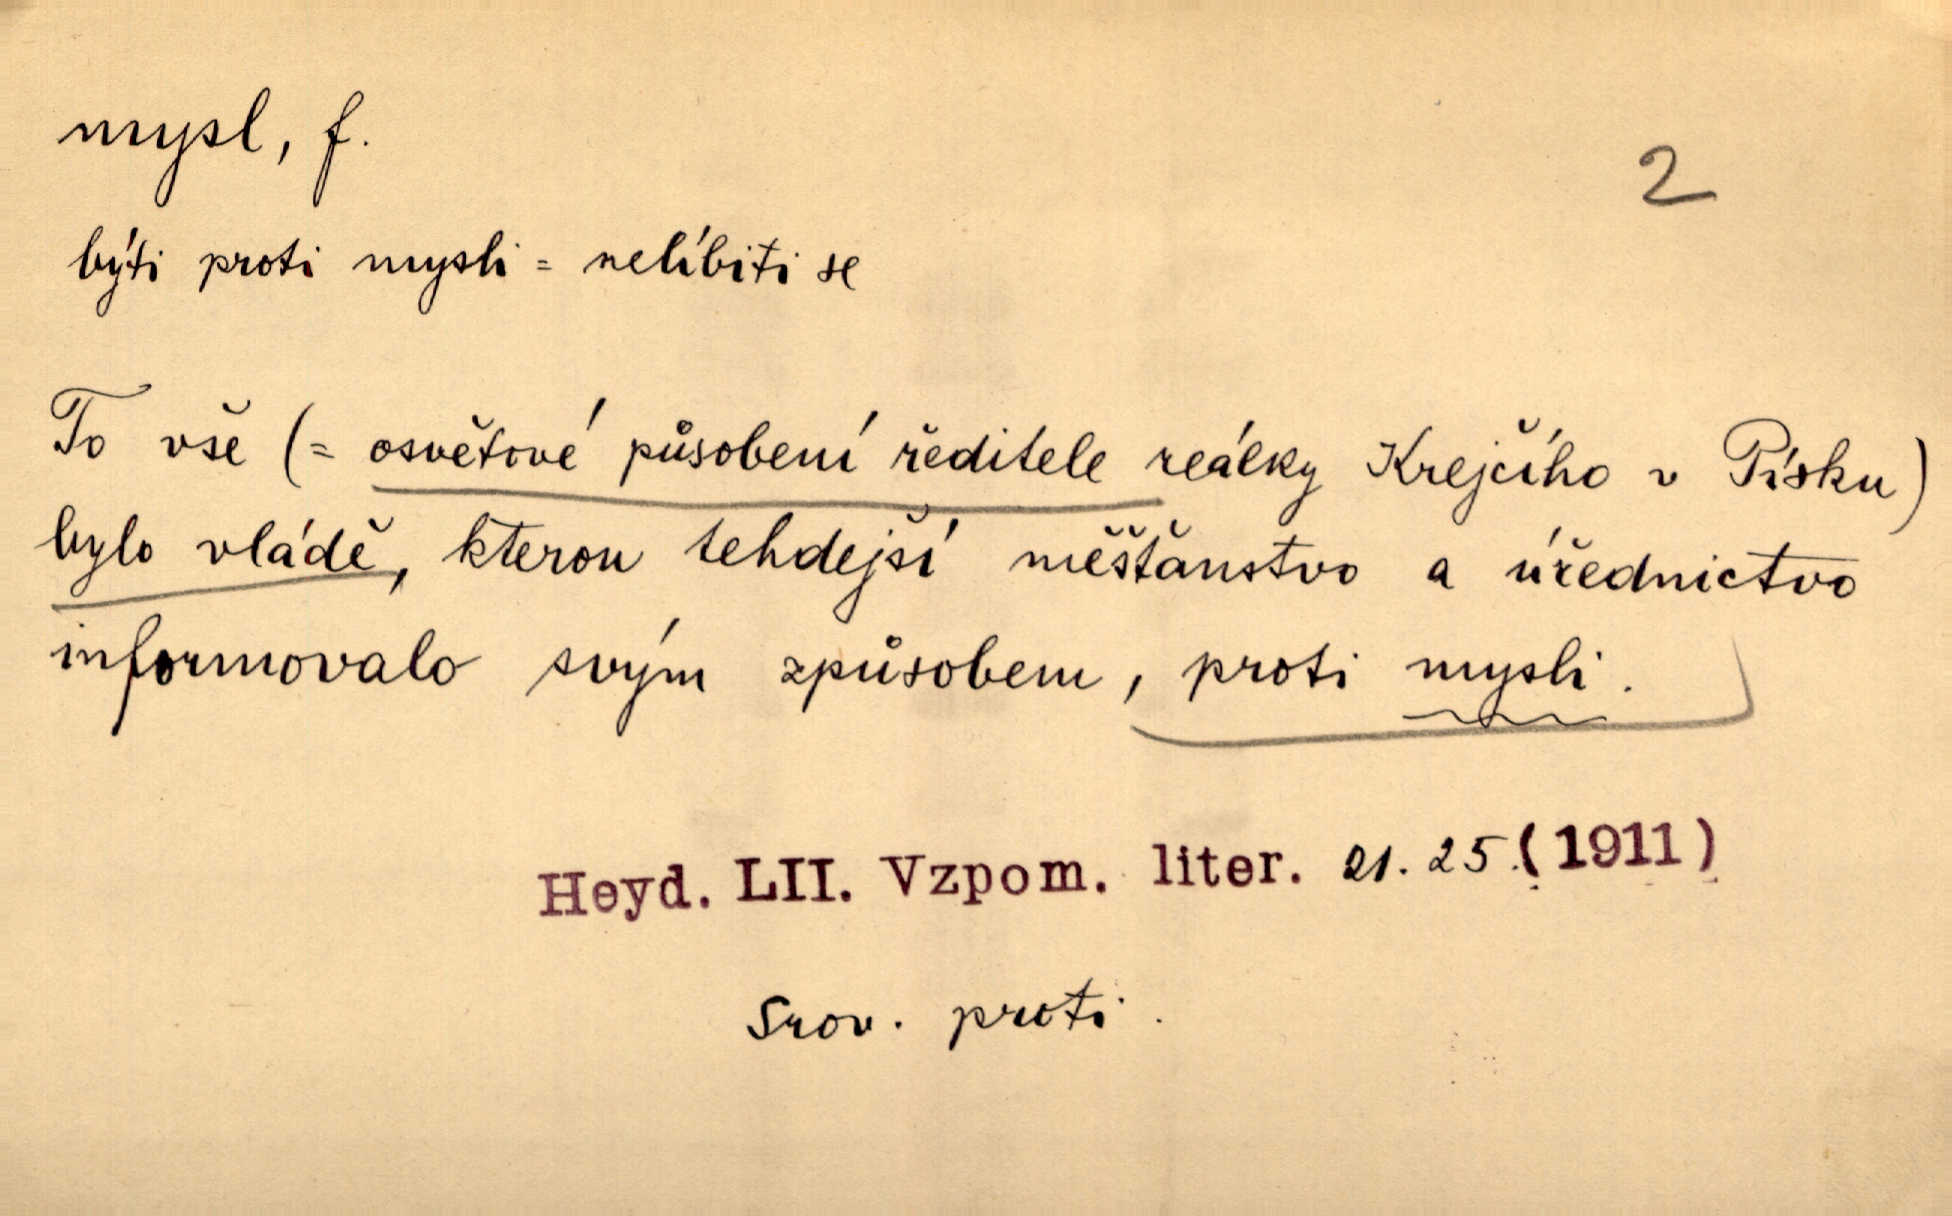 mysl, f.
2
býti proti mysli = nelíbiti se
To vše (= osvětové působení ředitele reálky Krejčího v Písku)
bylo vládě, kterou tehdejší měšťanstvo a úřednictvo
informovalo svým způsobem, proti mysli.
Heyd. LII. Vzpom. liter. 21. 25. (1911)
Srov. proti.